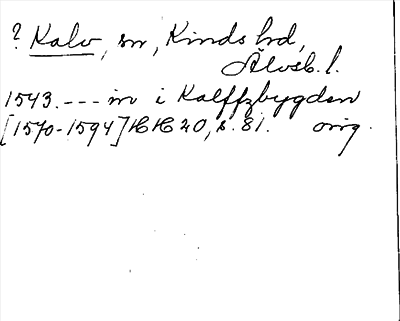 ? Kalv, sn, Kinds hd,
Älvsb. l.
1543. --- in i Kalffzbygden
[1570-1594] HH 20, s. 81. orig.